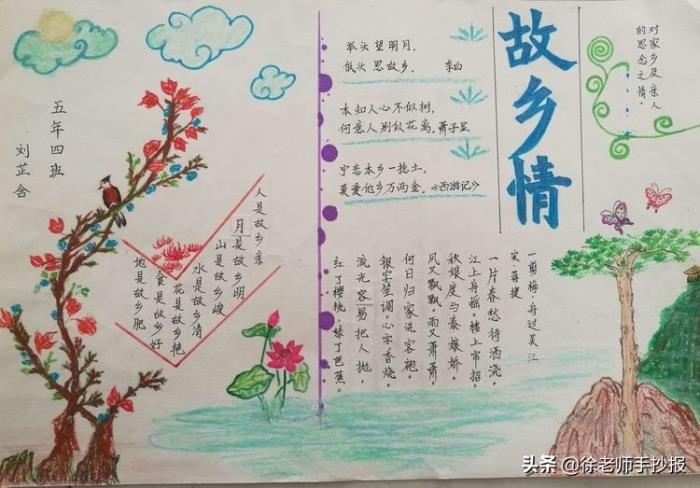 故乡情
对家乡及亲人
的思念之情。
举头望明月，
低头思故乡。 李白
本知人心不似树，
何意人别似花离。萧子显
宁恋本乡一捻土，
莫爱他乡万两金。《西游记》
一剪梅·舟过吴江
宋 蒋捷
一片春愁待酒浇。
江上舟摇。楼上帘招。
秋娘度与泰娘娇。
风又飘飘。雨又萧萧。
何日归家洗客袍。
银字笙调。心字香烧。
流光容易把人抛。
红了樱桃。绿了芭蕉。
人是故乡亲
月是故乡明
山是故乡峻
水是故乡清
花是故乡艳
食是故乡好
地是故乡肥
五年四班
刘芷含
头条 @徐老师手抄报